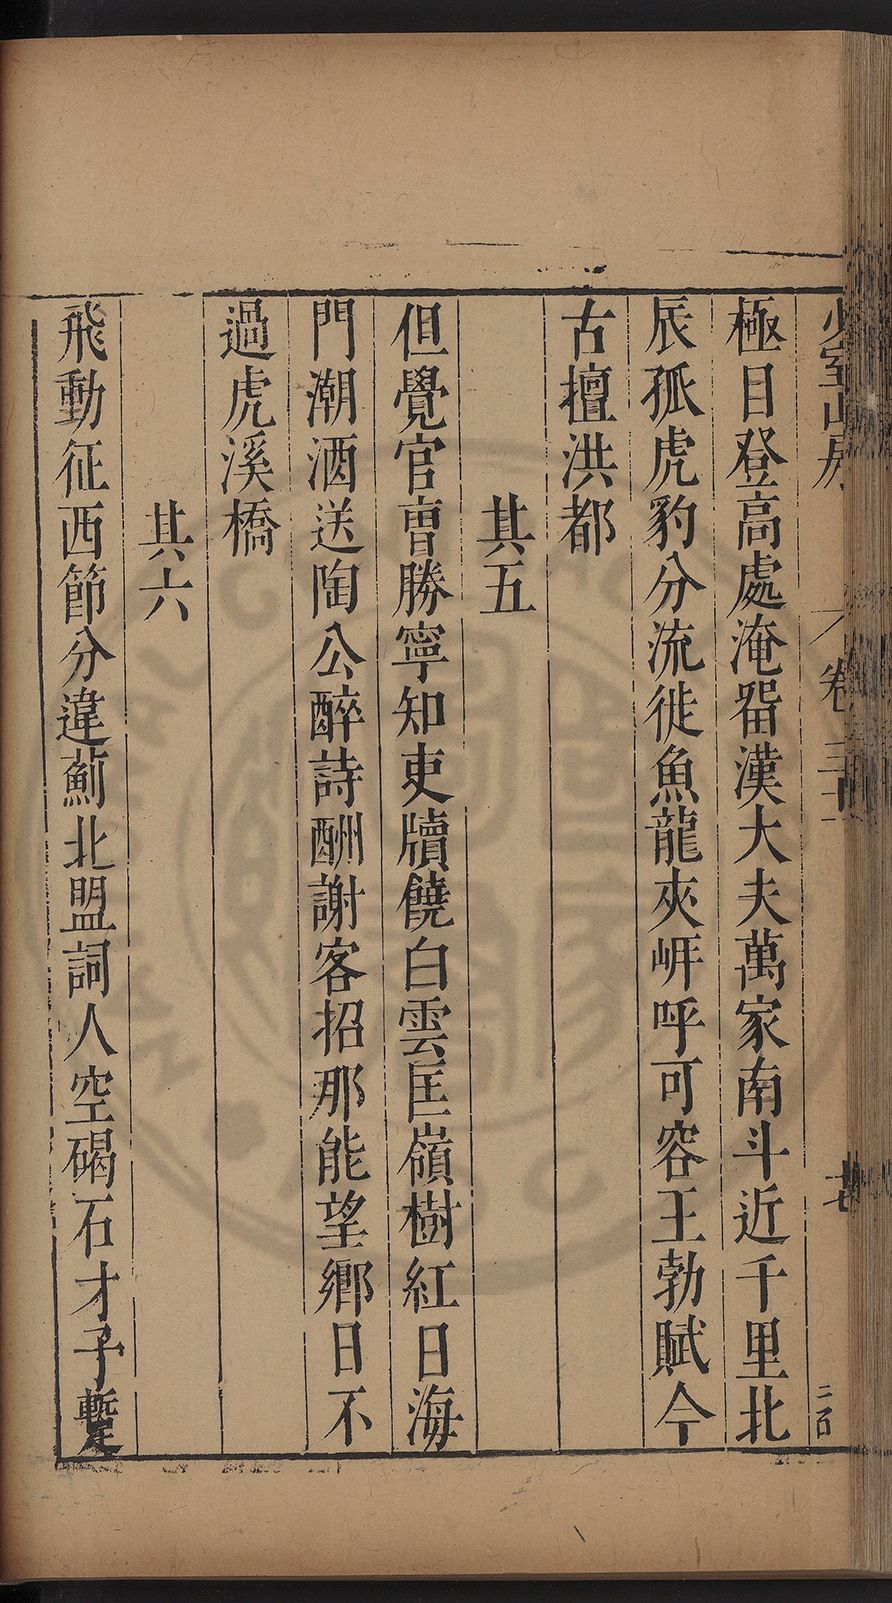 少室山房
卷三十
七
二百
極目登高處淹畱漢大夫萬家南斗近千里北
辰孤虎豹分流徙魚龍夾岍呼可容王勃賦今
古擅洪都
其五
但覺官曹勝寧知吏牘饒白雲匡嶺樹紅日海
門潮酒送陶公醉詩酬謝客招那能望鄉日不
過虎溪橋
其六
飛動征西節分違薊北盟詞人空碣石才子蹔